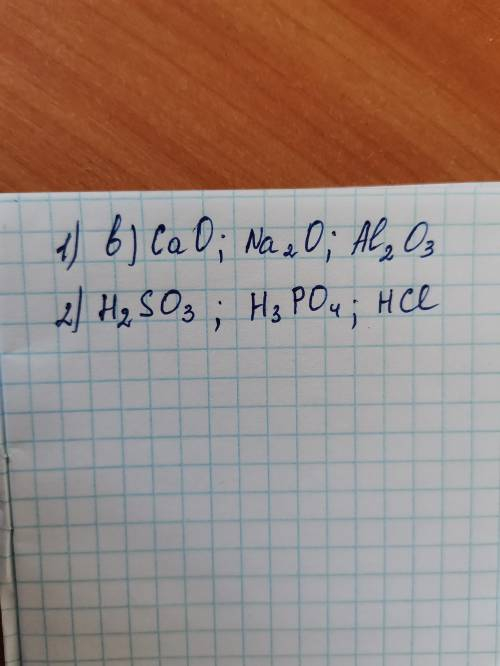 1) в) CaO; Na₂O; Al₂O₃
2) H₂SO₃; H₃PO₄; HCl